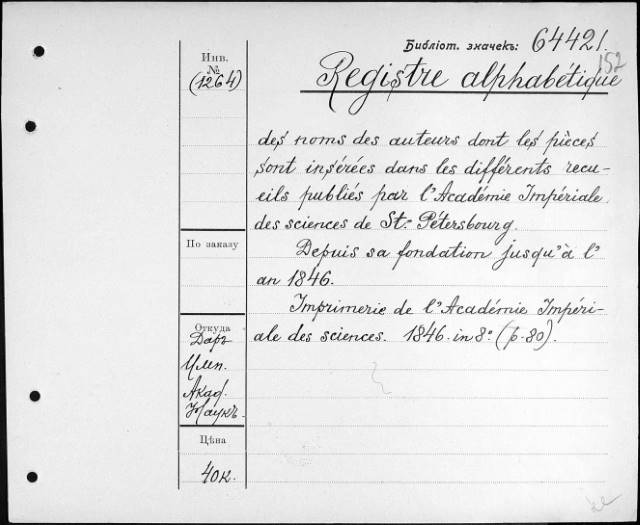 Библіот. значекъ: 64421.
152
Инв.
№
(1264)
Registre alphabétique
des noms des auteurs dont les pièces
sont insérées dans les différents recu-
eils publiés par l'Académie Impériale
des sciences de St. Pétersbourg.
По заказу
Depuis sa fondation jusqu'à l'
an 1846.
Imprimerie de l'Académie Impéri-
ale des sciences. 1846. in 8º. (p. 80).
Откуда
Даръ
Имп.
Акад.
Наукъ.
Цѣна
40 к.